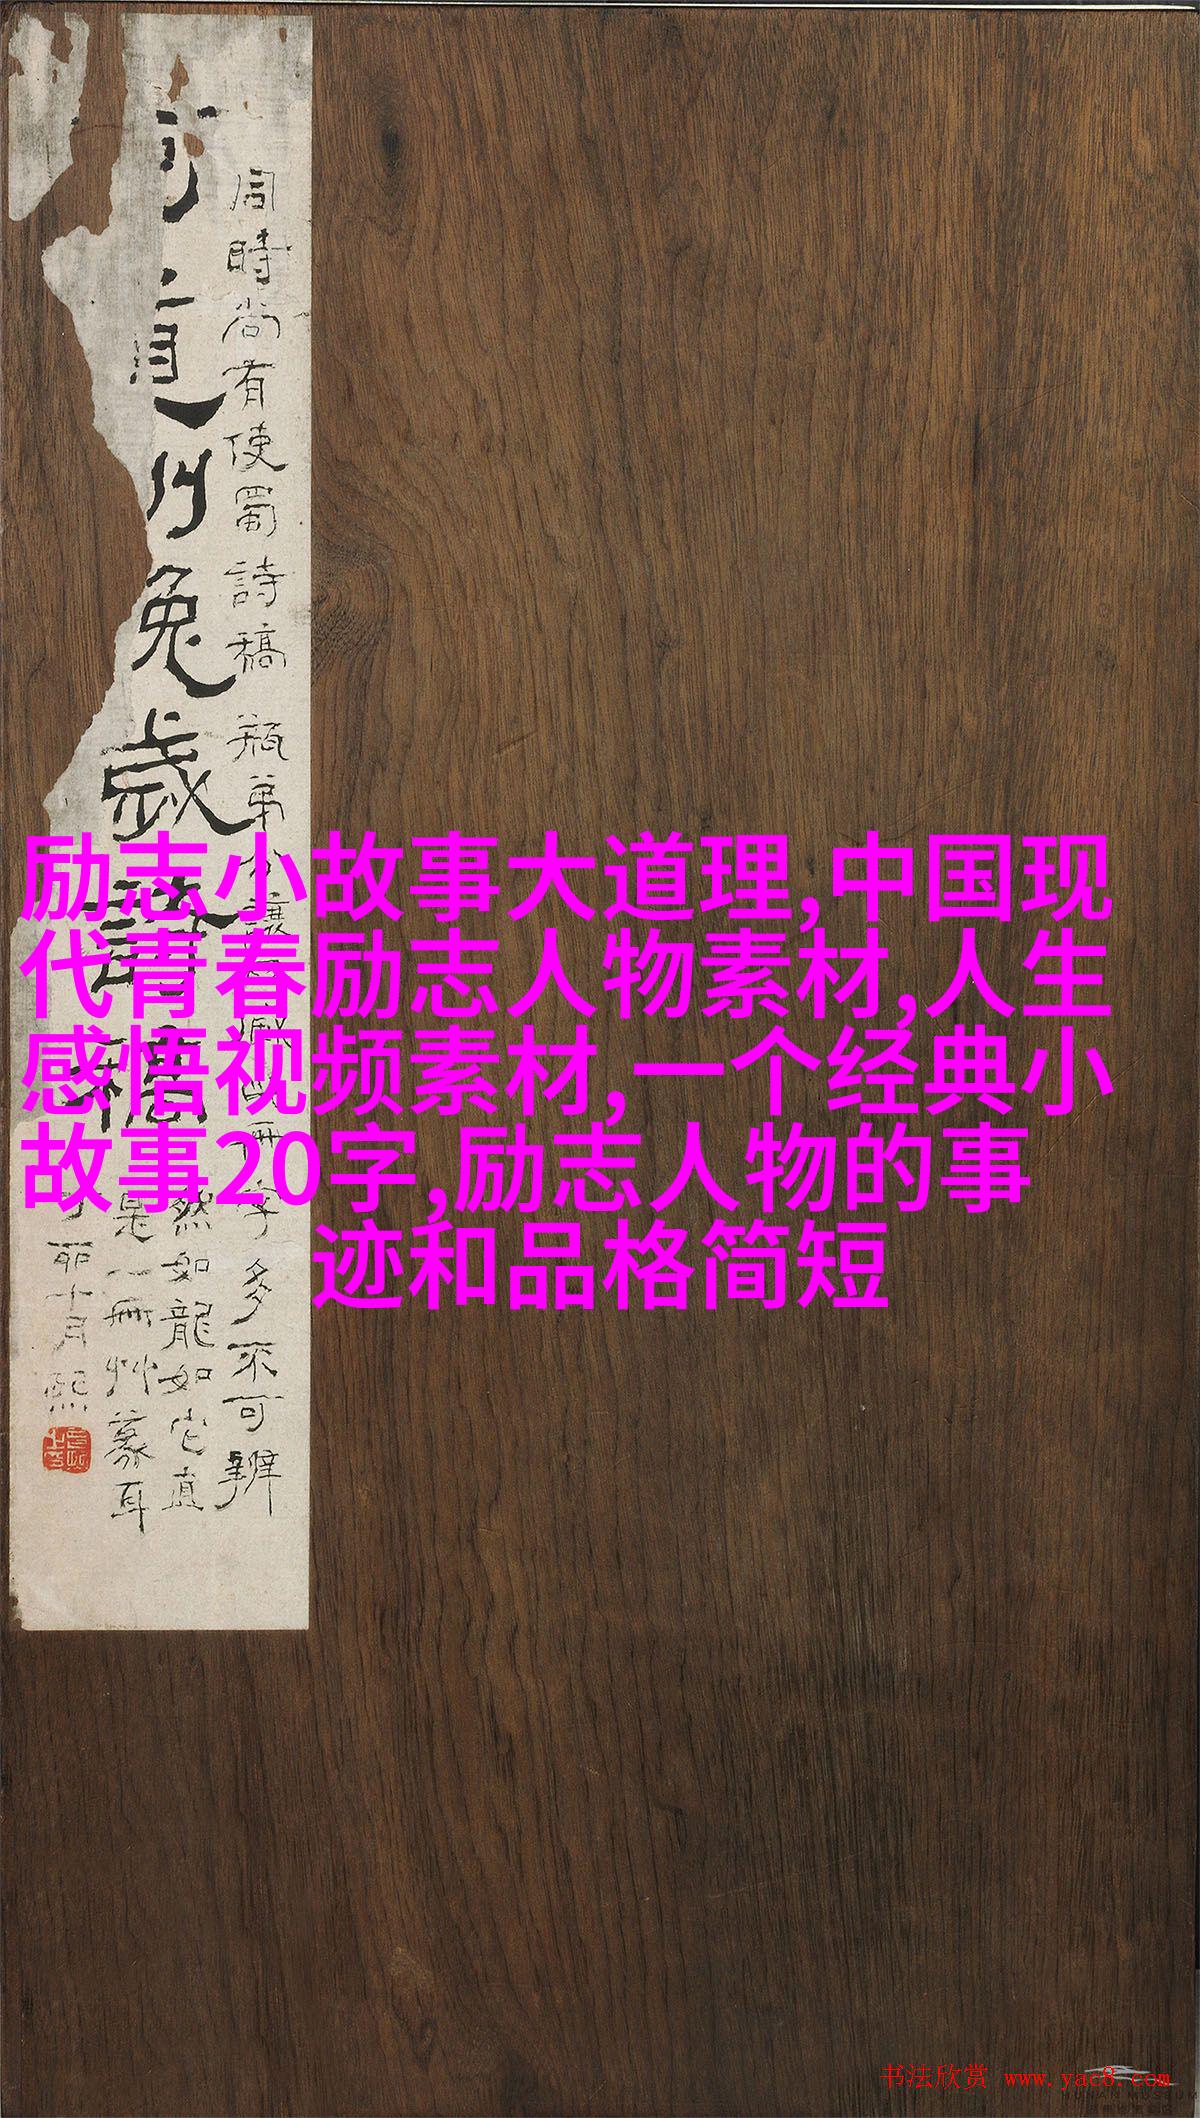 励志小故事大道理,中国现
代青春励志人物素材,人生
感悟视频素材,一个经典小
故事20字,励志人物的事
迹和品格简短
兔歲詩稿
同時尚有使蜀詩稿瓶弟
字多不可辨
然如龍如它直
是一冊艸藁耳
丁卯十月熙
书法欣赏 www.yac8.com
HUNAN MUSEUM